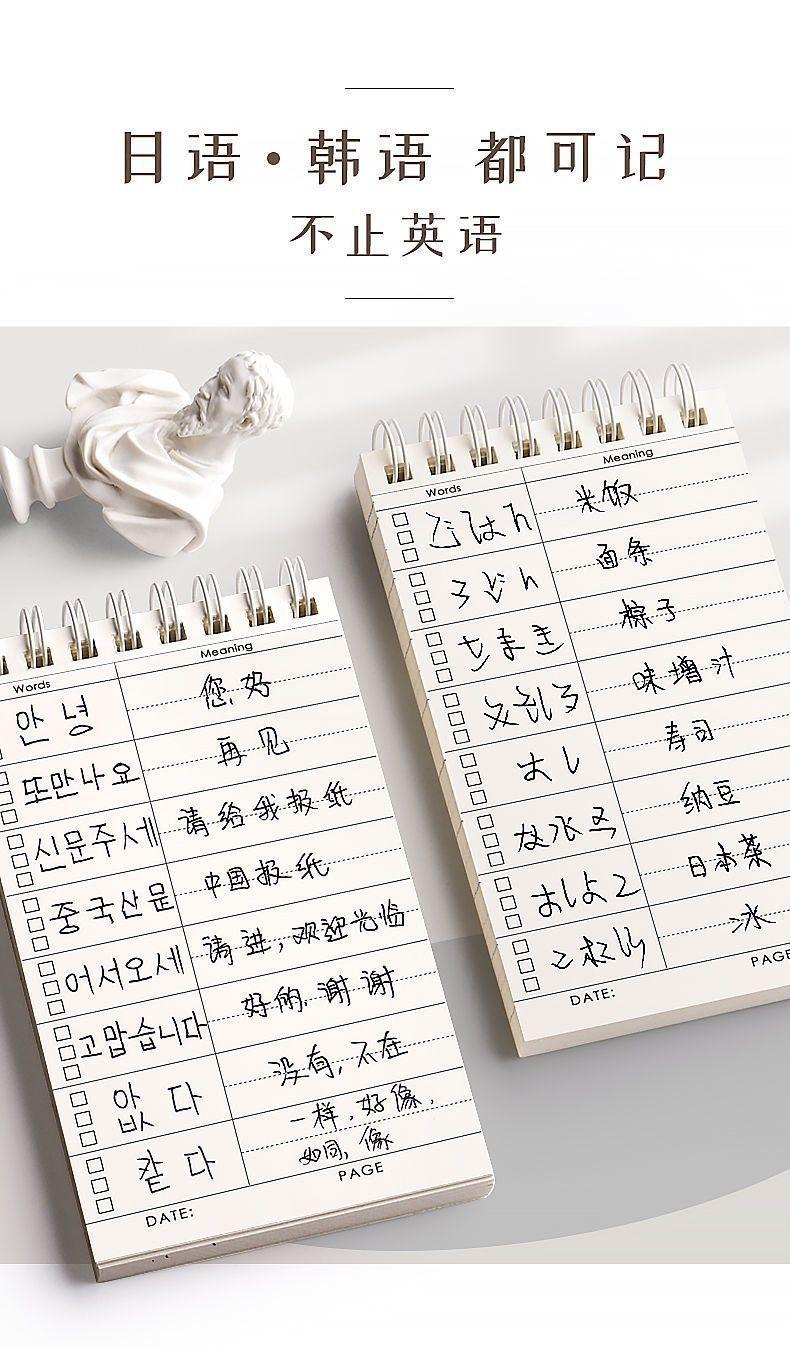 日语·韩语 都可记
不止英语
Words Meaning
안녕 您好
또만나요 再见
신문주세 请给我报纸
중국산문 中国报纸
어서오세 请进，欢迎光临
고맙습니다 好的，谢谢
없다 没有，不在
같다 一样，好像，
如同，像
PAGE
DATE:
Words Meaning
ごはん 米饭
うどん 面条
ちまき 粽子
味增汁
すし 寿司
纳豆
日本菜
冰
PAGE
DATE: